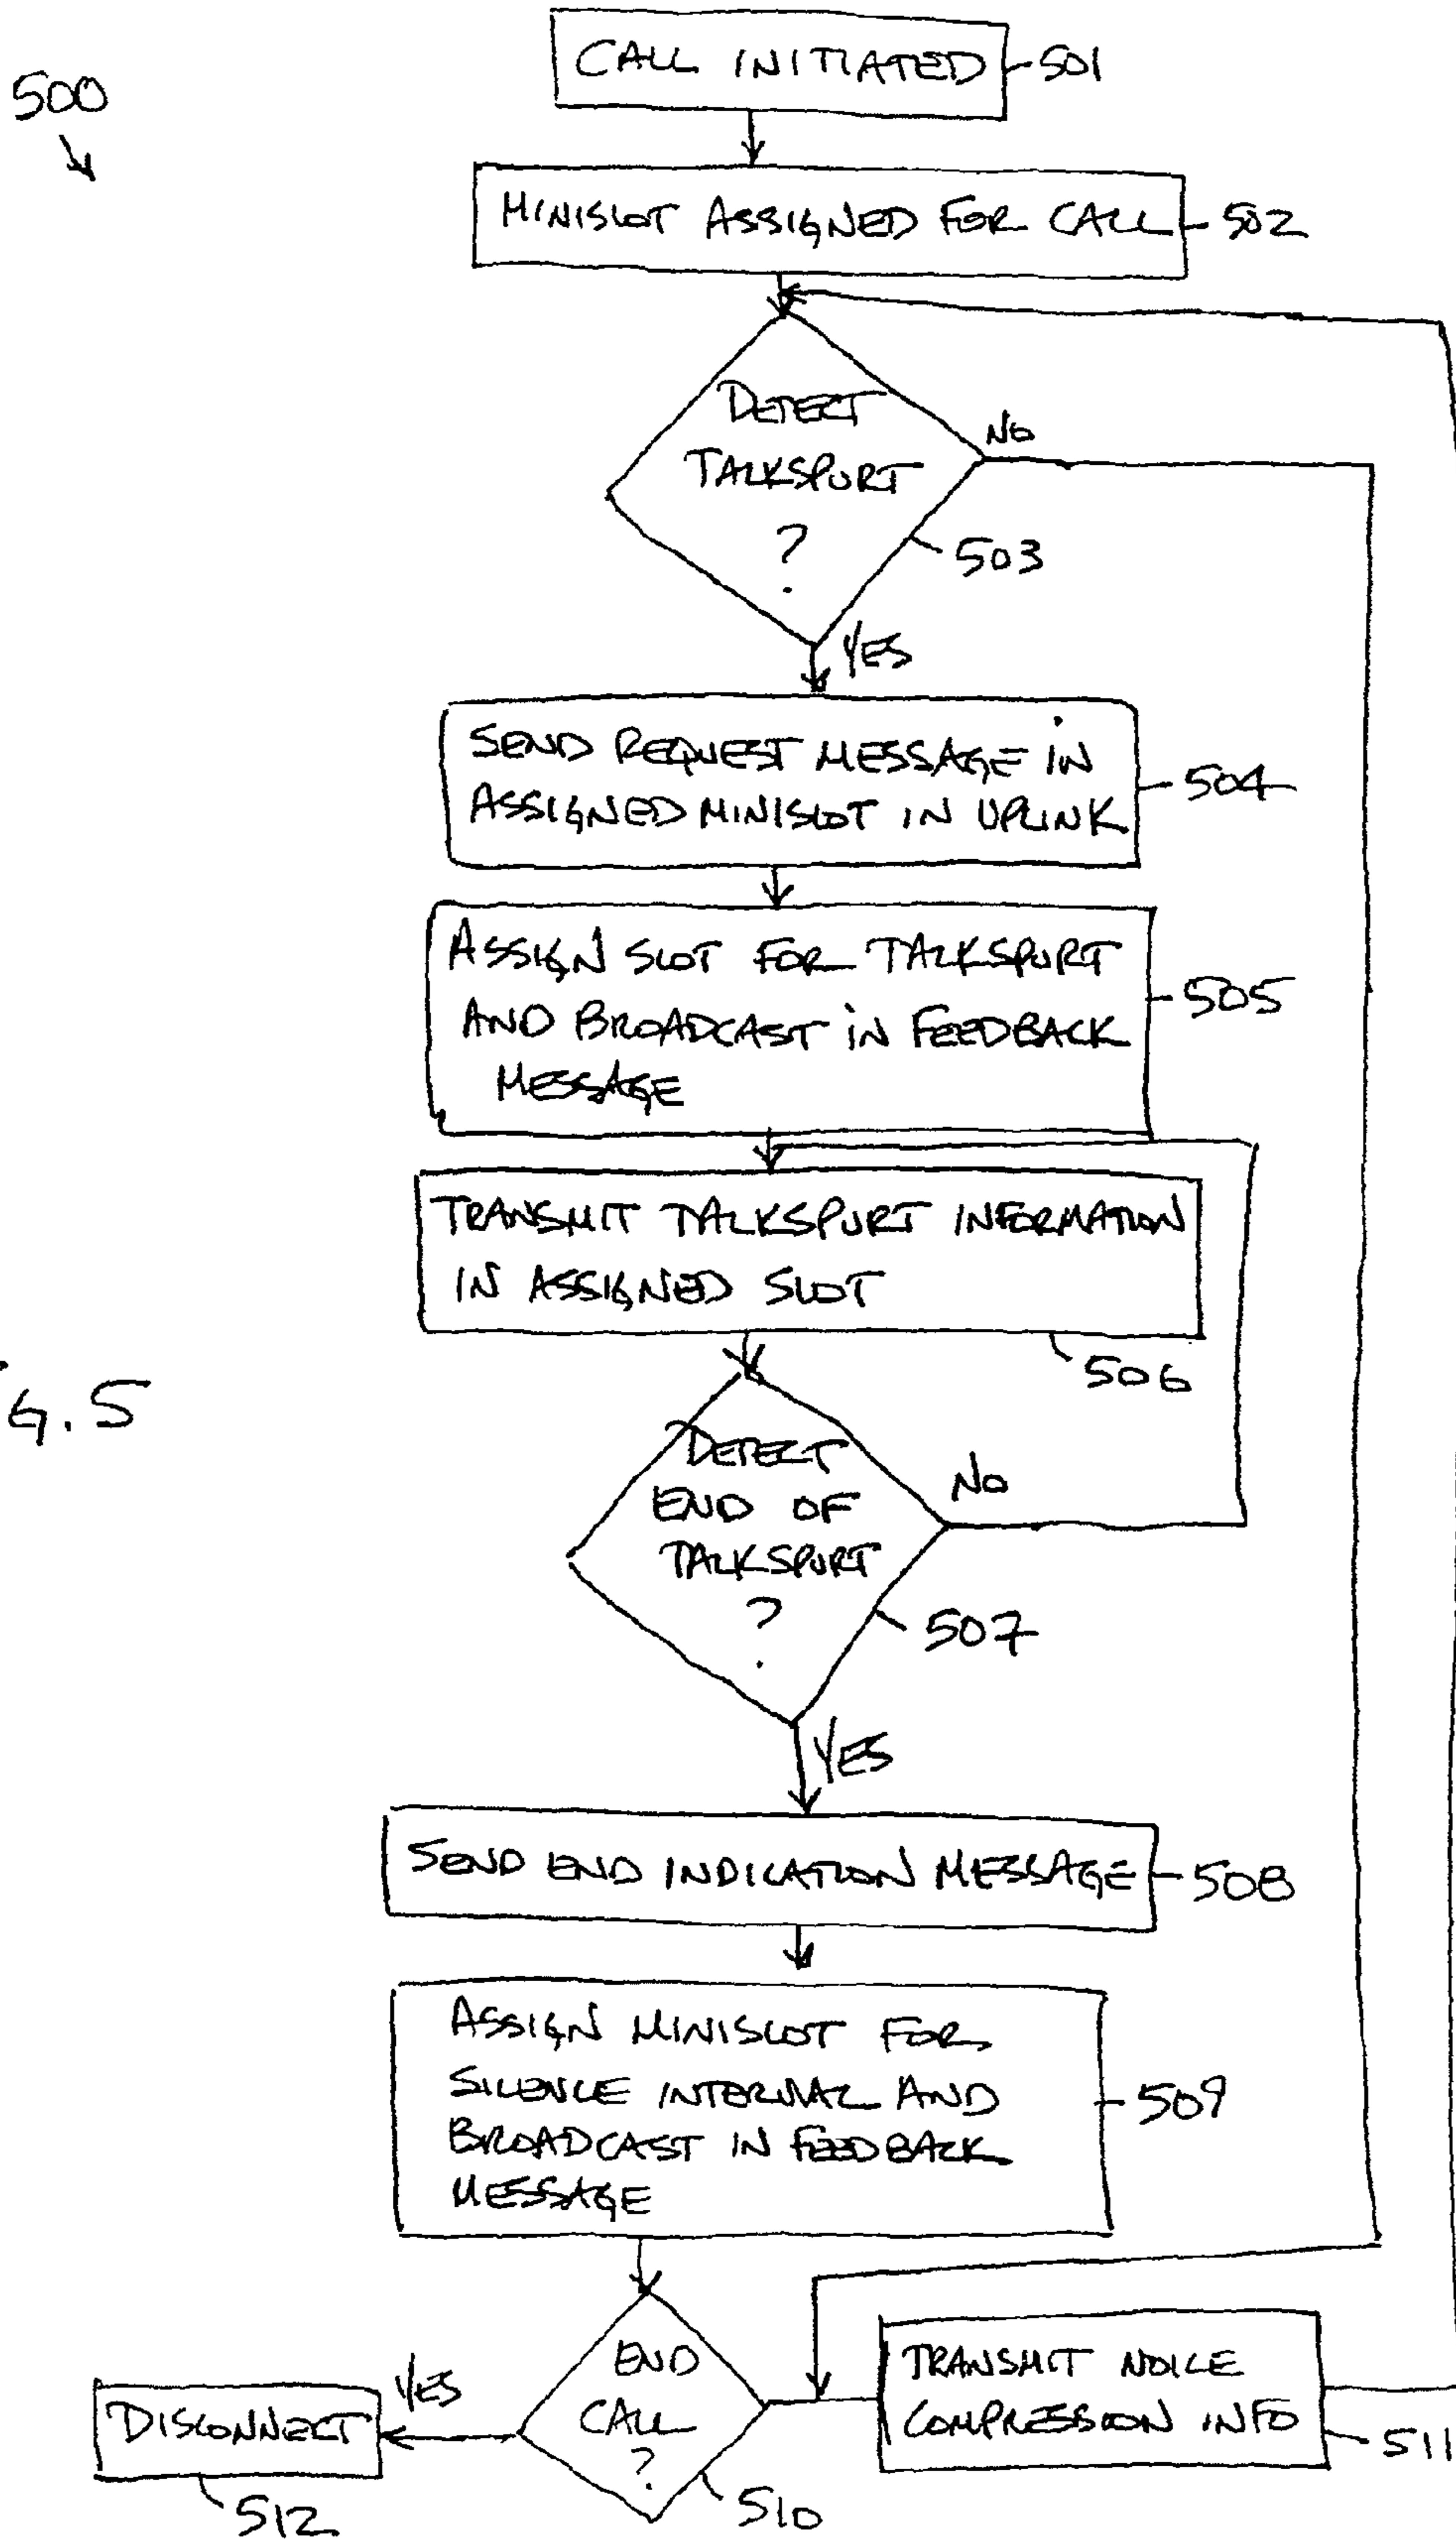 500
CALL INITIATED
501
MINISLOT ASSIGNED FOR CALL
502
DETECT
TALKSPURT
?
NO
503
YES
SEND REQUEST MESSAGE IN
ASSIGNED MINISLOT IN UPLINK
504
ASSIGN SLOT FOR TALKSPURT
AND BROADCAST IN FEEDBACK
MESSAGE
505
TRANSMIT TALKSPURT INFORMATION
IN ASSIGNED SLOT
506
G. 5
DETECT
END OF
TALKSPURT
?
NO
507
YES
SEND END INDICATION MESSAGE
508
ASSIGN MINISLOT FOR
SILENCE INTERVAL AND
BROADCAST IN FEEDBACK
MESSAGE
509
END
CALL
?
510
YES
DISCONNECT
512
TRANSMIT NOICE
COMPRESSION INFO
511